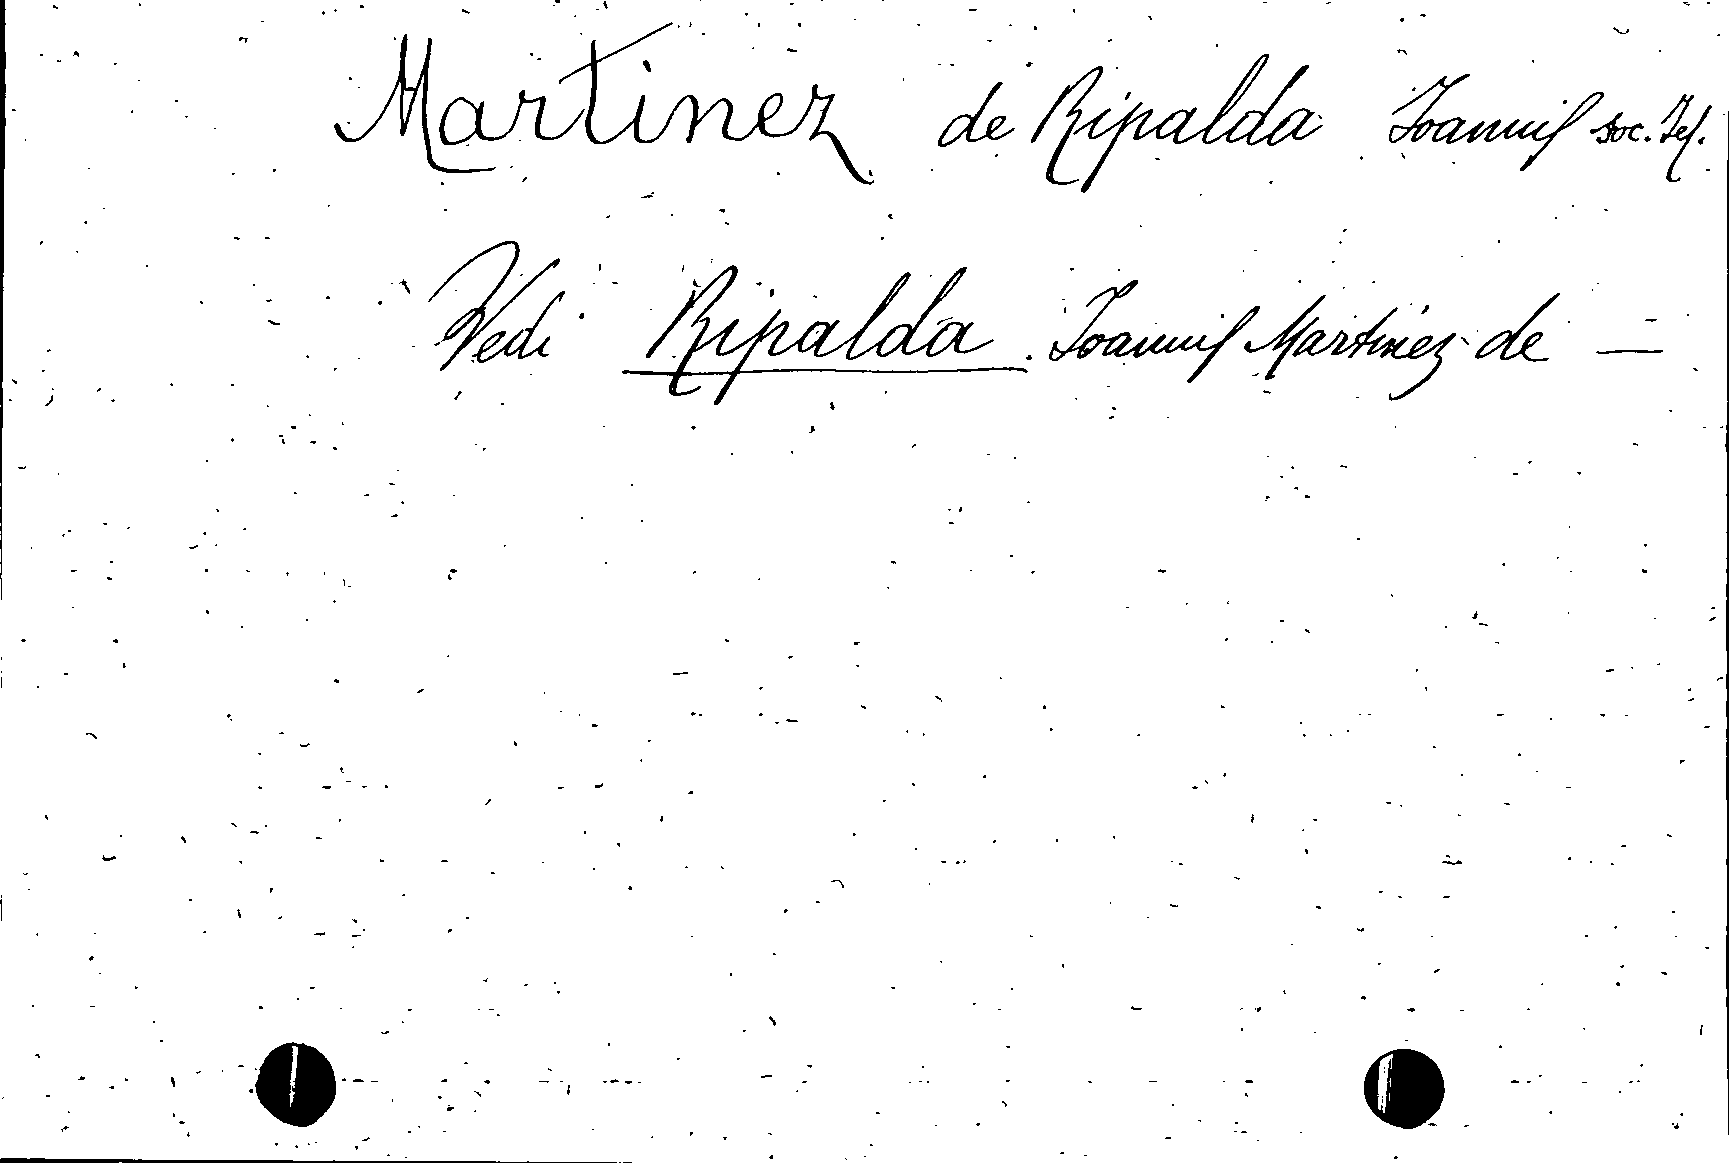 Martinez de Ripalda Ioannis soc. Jes.
Vedi Ripalda. Ioannis Martinez de —